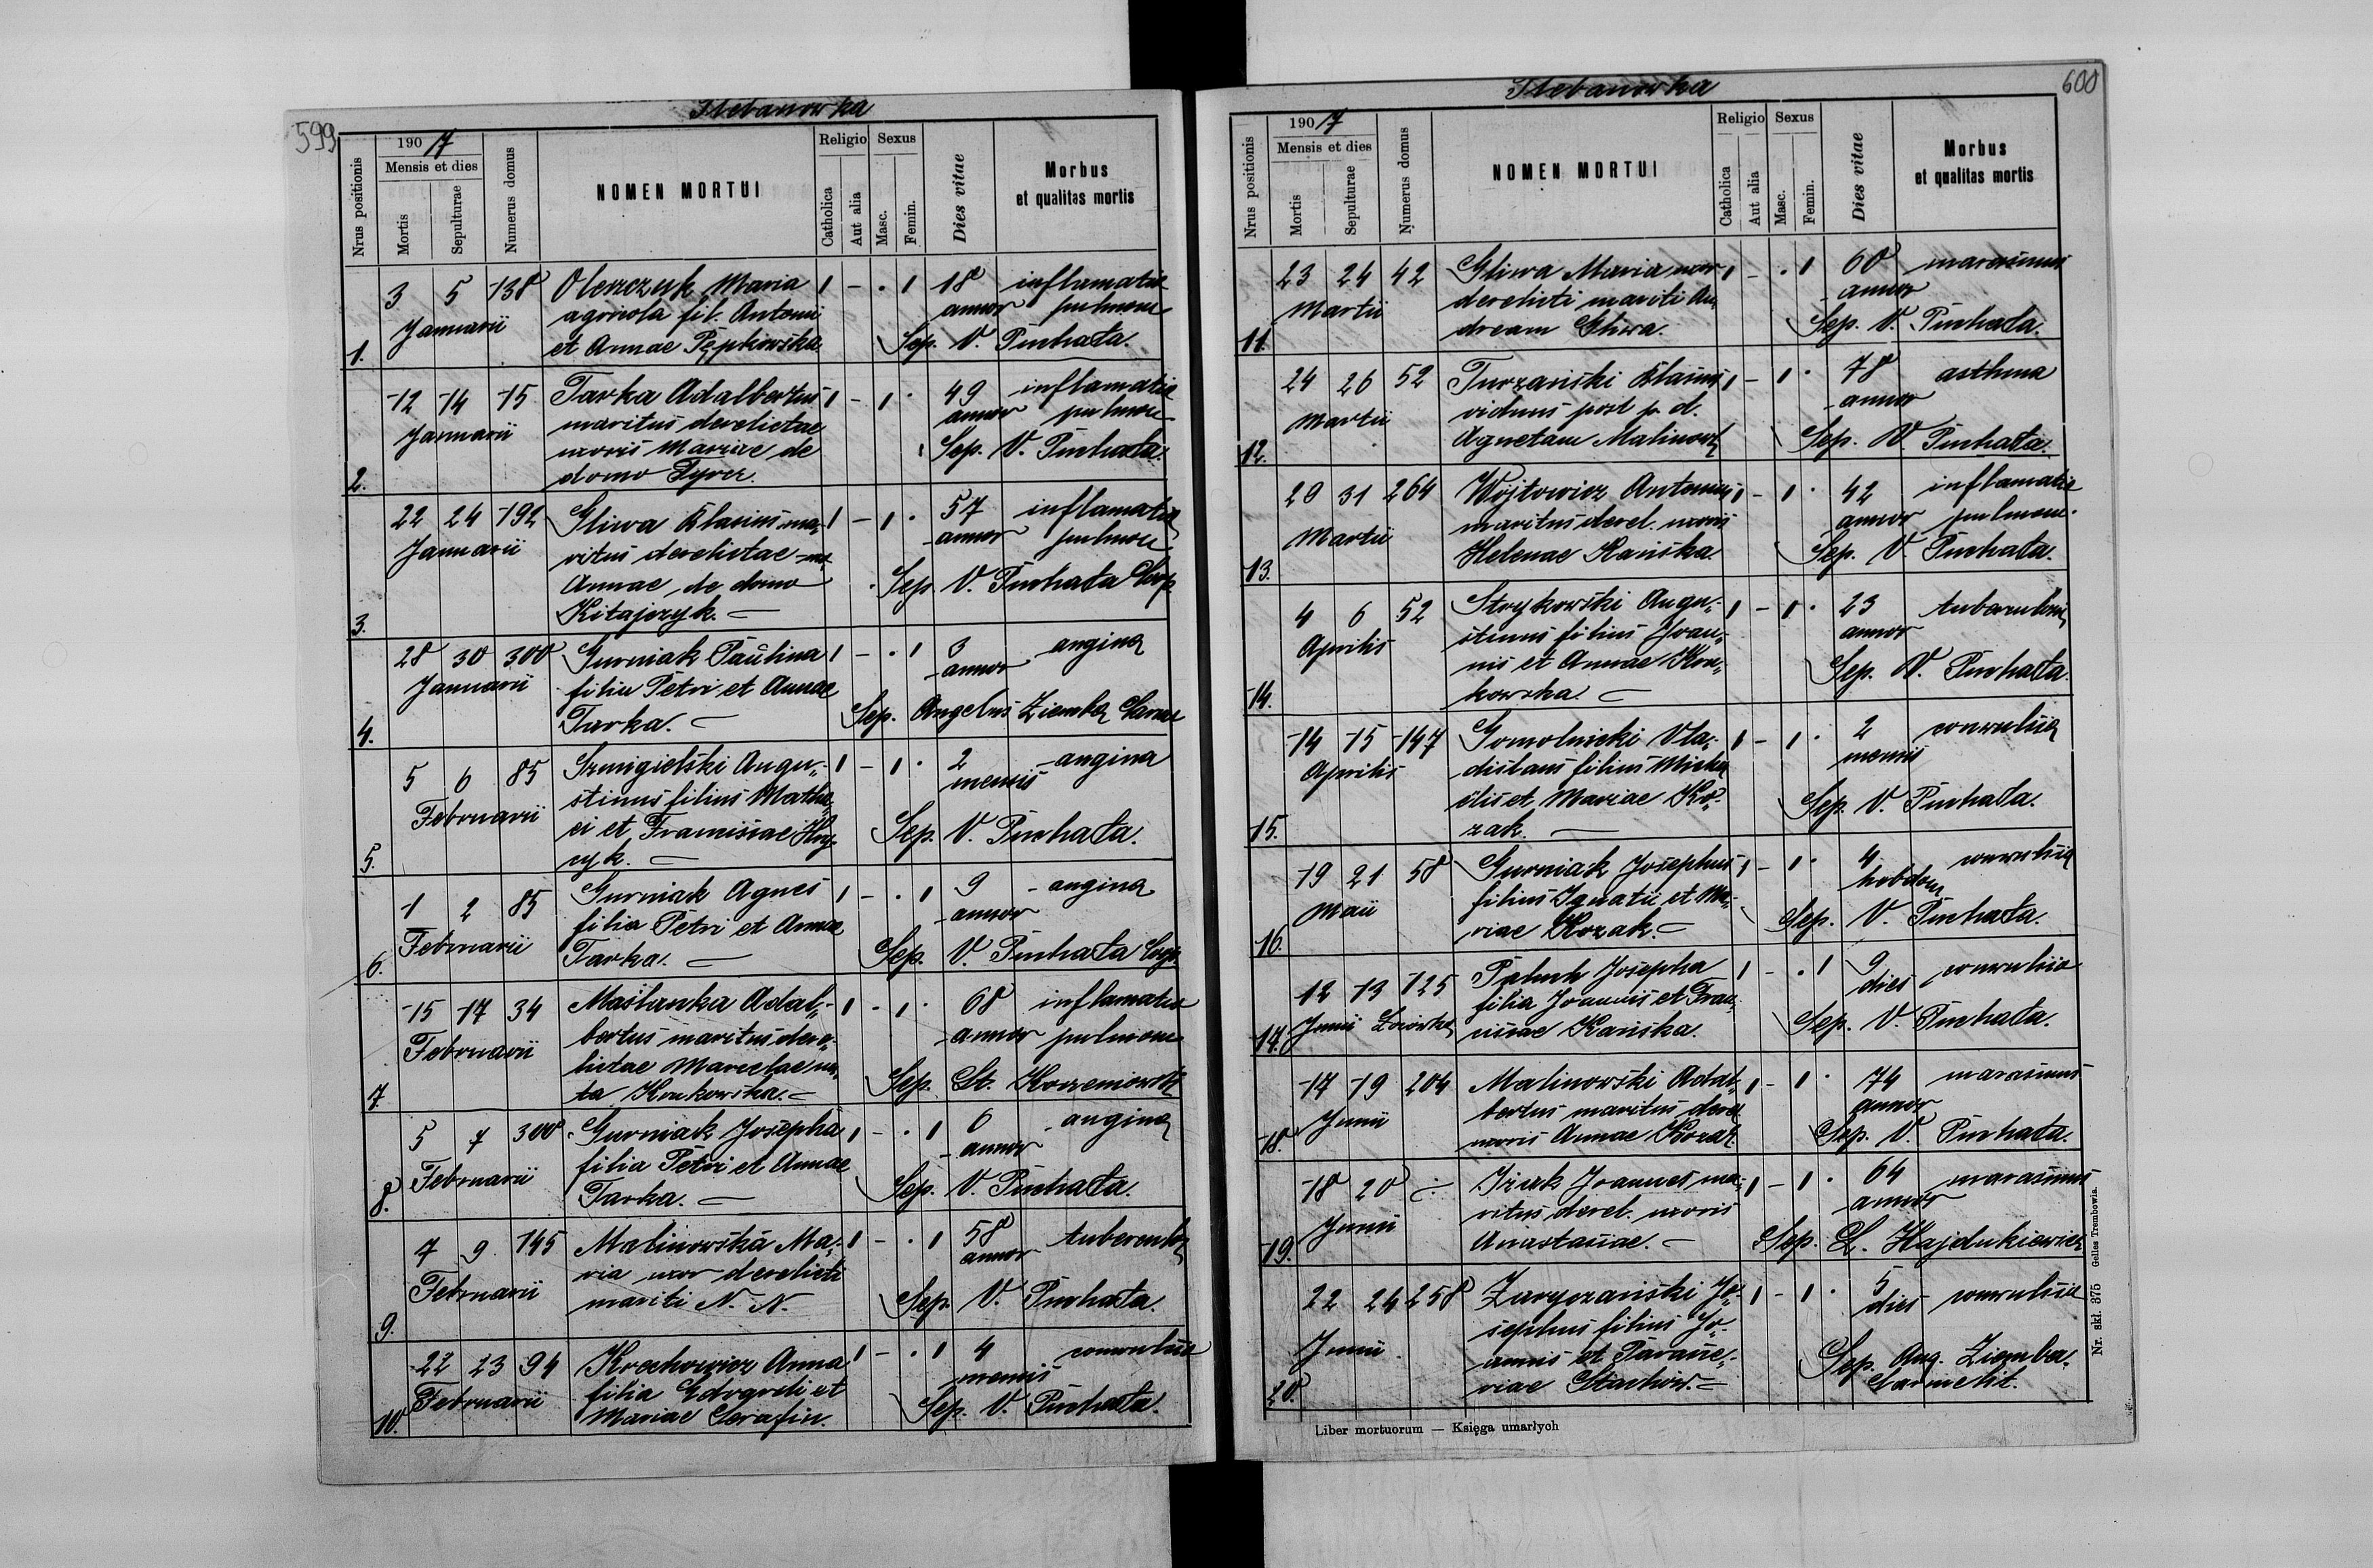 599
Ilebanowka
190 17
Nrus positionis
Mensis et dies
Mortis
Sepulturae
Numerus domus
NOMEN MORTUI
Religio
Catholica
Aut alia
Sexus
Masc.
Femin.
Dies vitae
Morbus
et qualitas mortis
1. 3 5 138 Olenczuk Maria 1 - . 1 18 inflamatio
Januarii agricola fil. Antonii annor pulmon
et Annae Pępkowska Sep. V. Puchała.
2. 12 14 15 Tarka Adalbertus 1 - 1 . 49 inflamatio
Januarii maritus derelictae annor pulmon
uxoris Mariae de Sep. V. Puchała.
domo Tyrcz.
3. 22 24 192 Gliwa Blasius ma- 1 - 1 . 57 inflamatio
Januarii ritus derelictae annor pulmon
Annae, de domo Sep. V. Puchała
Kitajczyk.
4. 28 30 300 Gurniak Paulina 1 - . 1 3 angina
Januarii filia Petri et Annae annor
Tarka. Sep. Angelus Ziemba
5. 5 6 85 Szmigielski Augu- 1 - 1 . 2 angina
Februarii stinus filius Mathae- mensis
ei et Franciscae Hry- Sep. V. Puchała.
cyk.
6. 1 2 85 Gurniak Agnes 1 - . 1 9 angina
Februarii filia Petri et Annae annor
Tarka. Sep. V. Puchała
7. 15 17 34 Maślanka Adal- 1 - 1 . 68 inflamatio
Februarii bertus maritus dere- annor pulmon
lictae Marcelae na- Sep. St. Korzeniowski
ta Krukowska.
8. 5 7 300 Gurniak Josepha 1 - . 1 6 angina
Februarii filia Petri et Annae annor
Tarka. Sep. V. Puchała.
9. 7 9 145 Malinowska Ma- 1 - . 1 58
Februarii ria uxor derelicti annor
mariti N. N. Sep. V. Puchała.
10. 22 23 94 Krochowicz Anna 1 - . 1 4 convulsio
Februarii filia et mensis
Mariae Serafin. Sep. V. Puchała.
600
Ilebanowka
190 17
Nrus positionis
Mensis et dies
Mortis
Sepulturae
Numerus domus
NOMEN MORTUI
Religio
Catholica
Aut alia
Sexus
Masc.
Femin.
Dies vitae
Morbus
et qualitas mortis
11. 23 24 42 Gliwa Maria uxor 1 - . 1 60 marasmus
Martii derelicti mariti An- annor
dream Gliwa. Sep. V. Puchała.
12. 24 26 52 Turzański Blasius 1 - 1 . 78 asthma
Martii viduus post p. d. annor
Agnetam Malinowsk Sep. V. Puchała.
13. 29 31 264 Wójtowicz Antonius 1 - 1 . 42 inflamatio
Martii maritus derel. uxoris annor pulmon.
Helenae Kańska. Sep. V. Puchała.
14. 4 6 52 Strykowski Augu- 1 - 1 . 23
Aprilis stinus filius Joan- annor
nis et Annae Kru- Sep. V. Puchała.
kowska.
15. 14 15 147 Gomolnicki Vla- 1 - 1 . 2 convulsio
Aprilis dislaus filius Micha mensis
elis et Mariae Ko- Sep. V. Puchała.
zak.
16. 19 21 58 Gurniak Josephus 1 - 1 . 4 convulsio
Maii filius Ignatii et Ma- hebdom
riae Kozak. Sep. V. Puchała.
17. 12 13 125 Paluch Josepha 1 - . 1 9 convulsio
Junii filia Joannis et Fran- dies
ciscae Kańska. Sep. V. Puchała.
18. 17 19 204 Malinowski Adal- 1 - 1 . 74 marasmus
Junii bertus maritus derel annor
uxoris Annae Kozak Sep. V. Puchała.
19. 18 20 Iżuk Joannes ma- 1 - 1 . 64 marasmus
Junii ritus derel. uxoris annor
Anastasiae. Sep. L. Hajdukiewicz
20. 22 24 258 Zaryczański Jo- 1 - 1 . 5 convulsio
Junii sephus filius Jo- dies
annis et Paras- Sep. Aug. Ziemba.
viae Stachow. Carmelit.
Liber mortuorum — Księga umarłych
Nr. skl. 375 Gelles Trembowla.